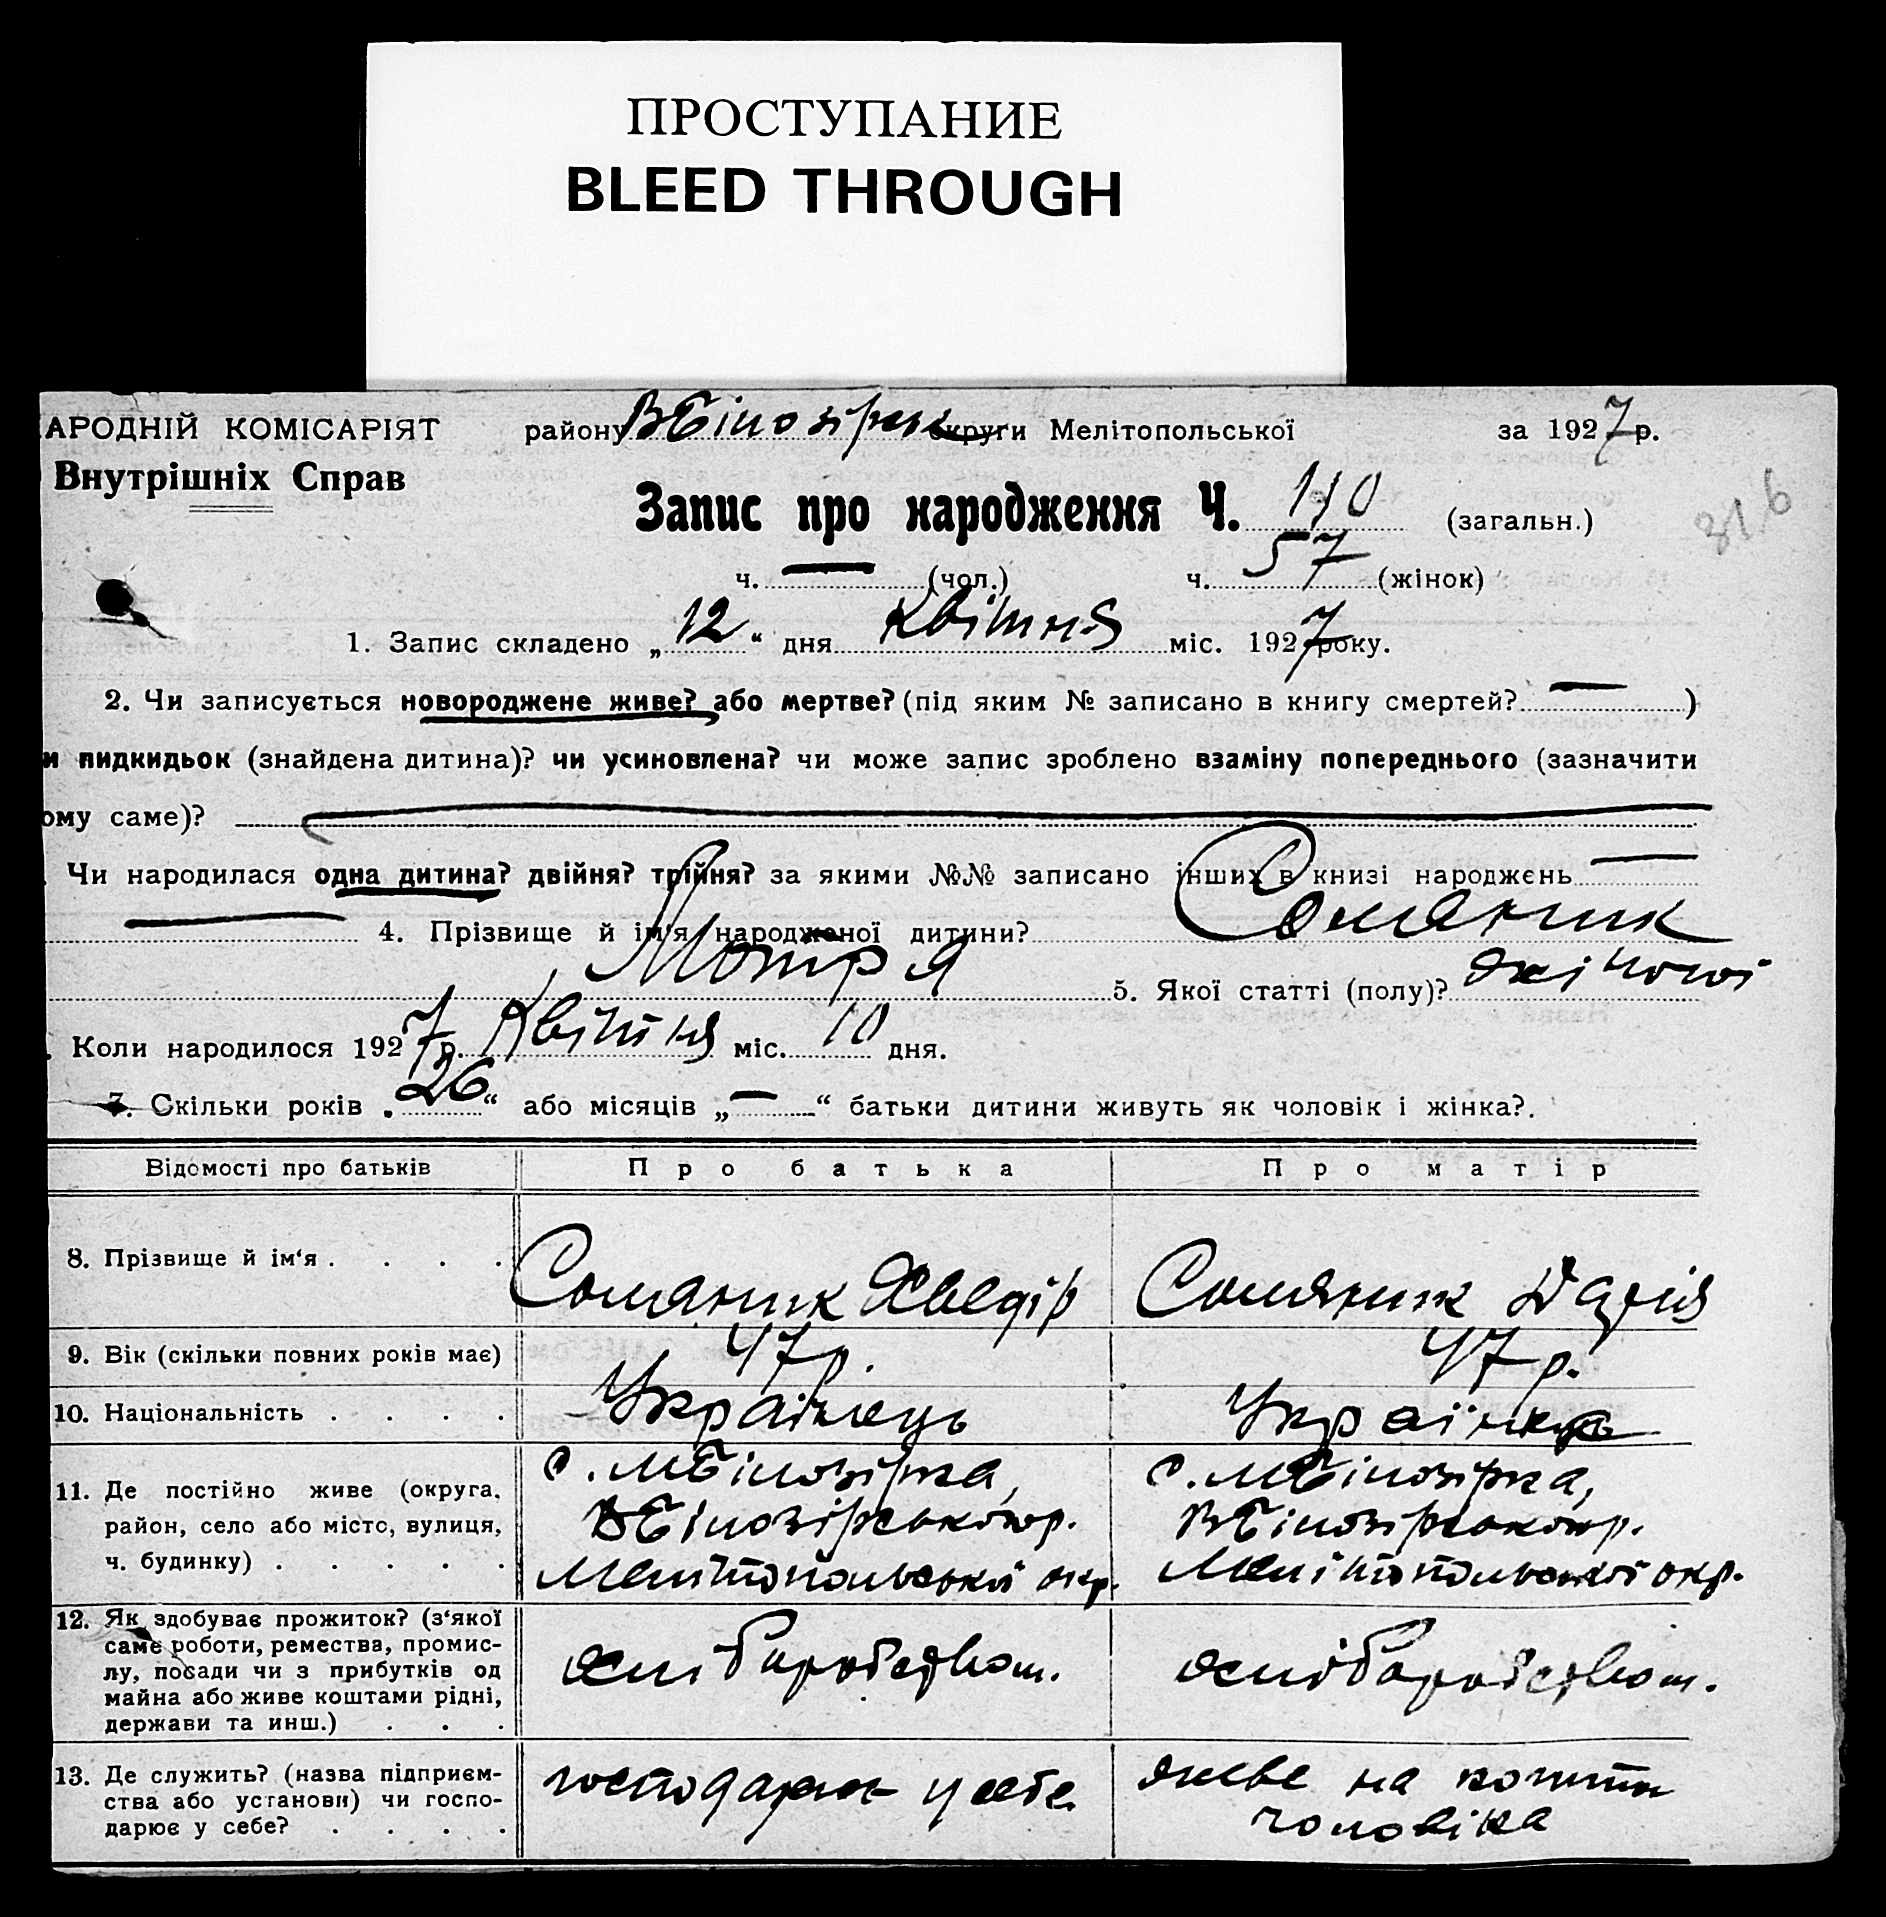 ПРОСТУПАНИЕ
BLEED THROUGH
АРОДНІЙ КОМІСАРІЯТ району ВБілозірськ округи Мелітопольської за 1927 р.
Внутрішніх Справ
Запис про народження Ч. 110 (загальн.)
316
ч. — (чол.) ч. 57 (жінок)
1. Запис складено „12“ дня Квітня міс. 1927 року.
2. Чи записується новороджене живе? або мертве? (під яким № записано в книгу смертей? — )
и пидкидьок (знайдена дитина)? чи усиновлена? чи може запис зроблено взаміну попереднього (зазначити
ому саме)?
. Чи народилася одна дитина? двійня? трійня? за якими №№ записано інших в книзі народжень —
— 4. Прізвище й ім'я народженої дитини? Соляник
Мотря 5. Якої статті (полу)? жіночої
. Коли народилося 1927 р. Квітня міс. 10 дня.
7. Скільки років „26“ або місяців „—“ батьки дитини живуть як чоловік і жінка?.
Відомості про батьків Про батька Про матір
8. Прізвище й ім'я . . . . Соляник Хведір Соляник Дарія
9. Вік (скільки повних років має) 47 р. 47 р.
10. Національність . . . . Українець Українка
11. Де постійно живе (округа, с. МБілозірка, с. МБілозірка,
район, село або місто, вулиця, ВБілозірського р. ВБілозірського р.
ч. будинку) . . . . . Мелітопольської окр. Мелітопольської окр.
12. Як здобуває прожиток? (з'якої
саме роботи, ремества, промис-
лу, посади чи з прибутків од
майна або живе коштами рідні,
держави та инш.) . . . хліборобством. хліборобством.
13. Де служить? (назва підприєм-
ства або установи) чи госпо-
дарює у себе? . . . . господарює у себе живе на кошти
чоловіка